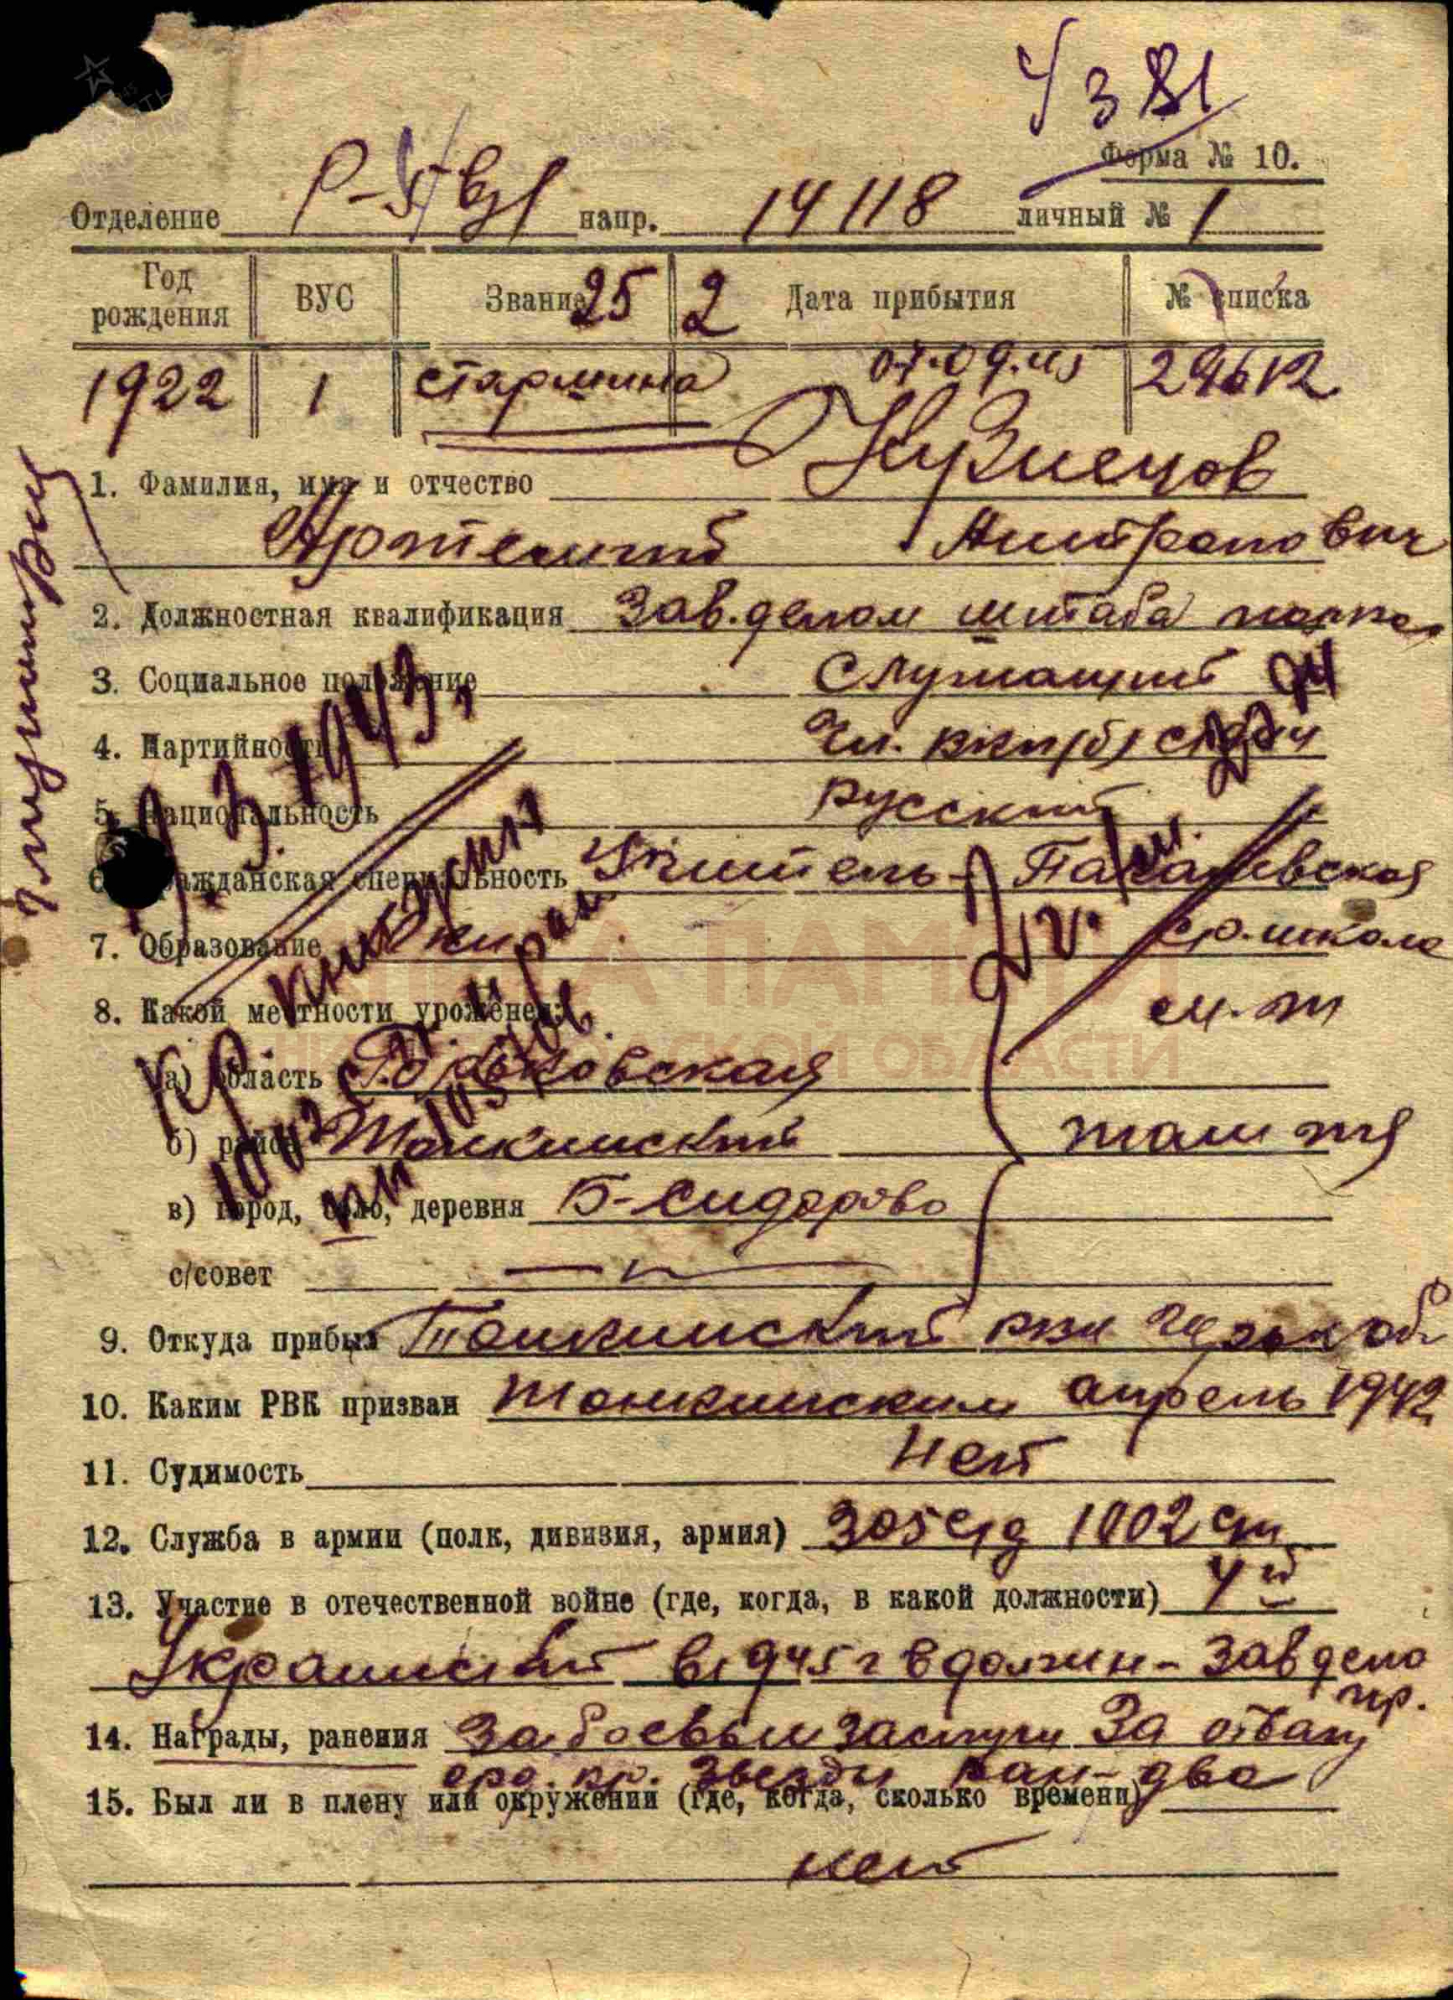 Форма № 10.
Отделение напр. 14118 личный № 1
Год рождения ВУС Звание 25 2 Дата прибытия № списка
1922 1 старшина 07.09.45 29612
1. Фамилия, имя и отчество Кузнецов
Артемий Митрофанович
2. Должностная квалификация Зав. делом штаба полка
3. Социальное положение Служащий
4. Партийность Чл. ВКП(б)
5. Национальность русский
6. Гражданская специальность Учитель -
ср. школа
7. Образование
8. Какой местности уроженец:
а) область Горьковская
б) район Тонкинский
в) город, село, деревня Б-Сидорово
с/совет
9. Откуда прибыл Тонкинский рвк Горьк обл
10. Каким РВК призван Тонкинским апрель 1942
11. Судимость нет
12. Служба в армии (полк, дивизия, армия) 305 сд 1002 сп
13. Участие в отечественной войне (где, когда, в какой должности) 4й
Украинский в 1945 г в должн- Зав дело
пр.
14. Награды, ранения За боевые заслуги За отвагу
орд. кр. Звезды ран- два
15. Был ли в плену или окружении (где, когда, сколько времени)
нет
19.3.1943.
КНИГА ПАМЯТИ
НИЖЕГОРОДСКОЙ ОБЛАСТИ